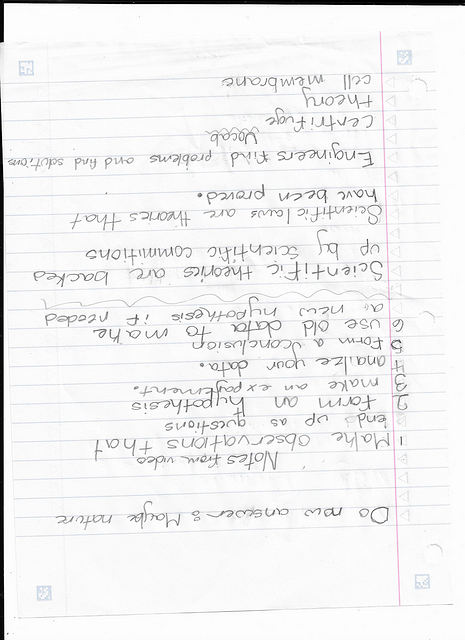 Do now answer: Maybe nature
Notes from video
1 Make observations that
end up as questions
2 form an hypothesis
3 make an expayrement.
4 analize your data.
5 form a conclusion
6 use old data to make
a new hypothesis if needed
Scientific theories are backed
up by scientific commitions
Scientific laws are theories that
have been proved.
Engineers find problems and find solutions
Vocab
Centrifuge
theory
cell membrane